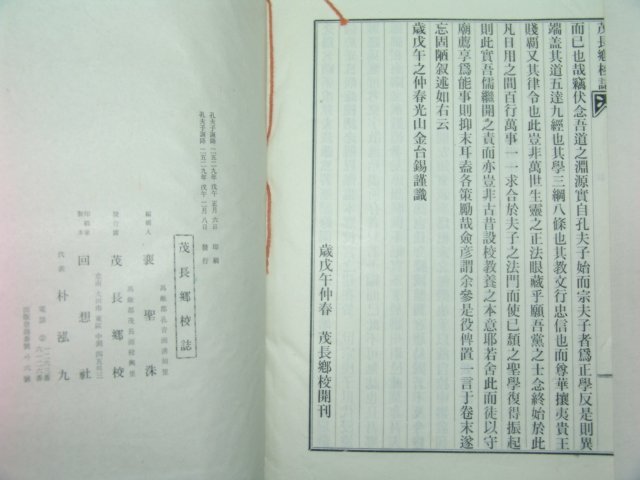 茂長鄕校誌
而已也哉竊伏念吾道之淵源實自孔夫子始而宗夫子者爲正學反是則異
端盖其道五達九經也其學三綱八條也其敎文行忠信也而尊華攘夷貴王
賤覇又其律令也此豈非萬世生靈之正法眼藏乎願吾黨之士念終始於此
凡日用之間百行萬事一一求合於夫子之法門而使已頹之聖學復得振起
則此實吾儒繼開之責而亦豈非古昔設校敎養之本意耶若舍此而徒以守
廟薦享爲能事則抑末耳盍各策勵哉僉彦謂余參是役俾置一言于卷末遂
忘固陋叙述如右云
歲戊午之仲春光山金台錫謹識
歲戊午仲春 茂長鄕校開刊
孔夫子誕降 二五二九年 戊午 正月 六日 印刷
孔夫子誕降 二五二九年 戊午 二月 八日 發行
茂長鄕校誌
編輯人 裵聖洙
發行所 茂長鄕校
回想社
代表 朴泓九